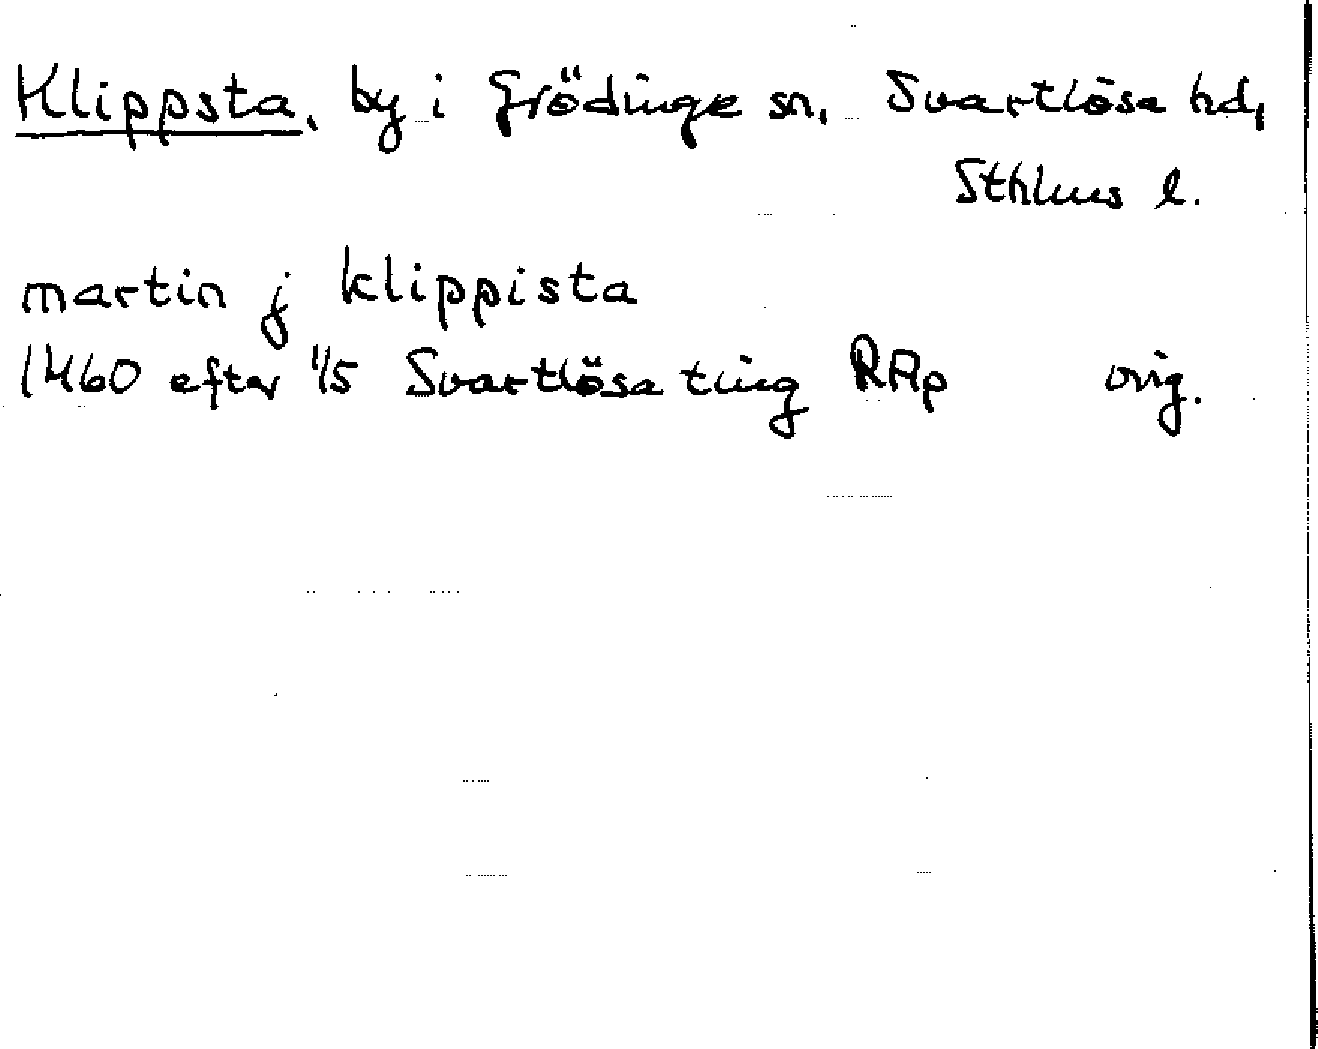 Klippsta, by i Grödinge sn, Svartlösa hd,
Sthlms l.
martin j klippista
1460 efter 1/5 Svartlösa ting RAp orig.